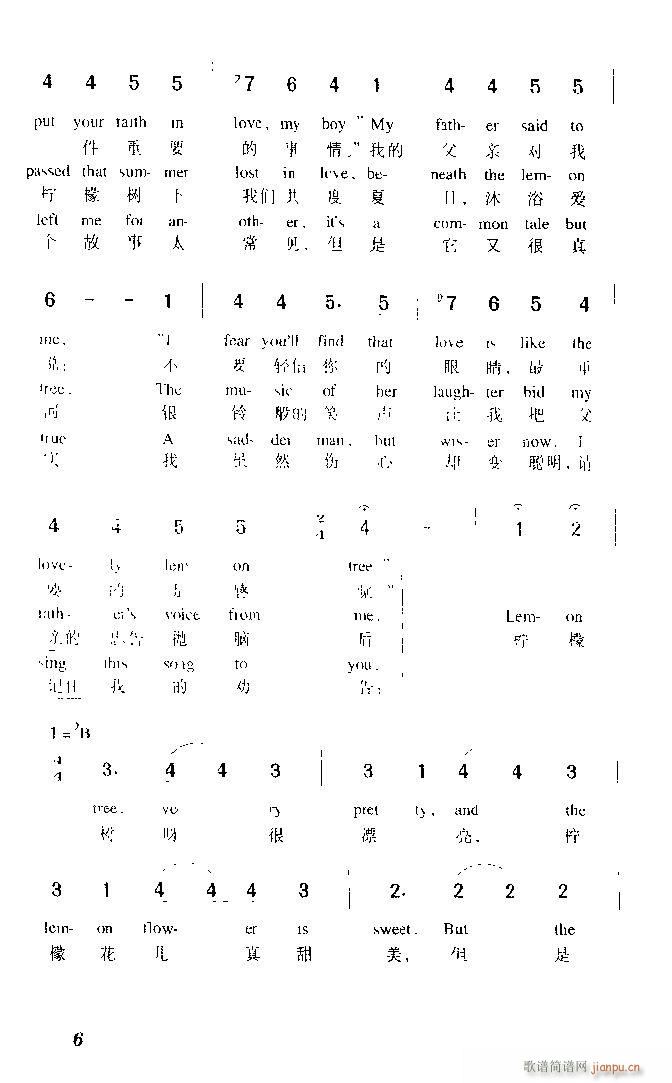 4 4 5 5 | ♭7 6 4 1 | 4 4 5 5 |
put your faith in love, my boy" "My fath- er said to
件 重 要 的 事 情。" 我的 父 亲 对 我
passed that sum- mer lost in love, be- neath the lem- on
柠 檬 树 下 我们 共 度 夏 日, 沐 浴 爱
left me for an- oth- er, it's a com- mon tale but
个 故 事 太 常 见, 但 是 它 又 很 真
6 - - 1 | 4 4 5. 5 | ♭7 6 5 4 |
me, "I fear you'll find that love is like the
说: 不 要 轻信 你 的 眼 睛, 最 重
tree. The mu- sic of her laugh- ter bid my
河 银 铃 般的 笑 声 让 我 把 父
true A sad- der man, but wis- er now, I
实 我 虽 然 伤 心 却 变 聪明, 请
4 4 5 5 2/4 4 - | 1 2 |
love- ly lem- on tree"
要 的 是
fath- er's voice from me. Lem- on
亲的 忠告 抛 脑 后 柠 檬
sing this song to you.
记住 我 的 劝 告:
1=♭B
4/4 3. 4 4 3 | 3 1 4 4 3 |
tree, ve- ry pret- ty, and the
树 呀 很 漂 亮, 柠
3 1 4 4 4 3 | 2. 2 2 2
lem- on flow- er is sweet. But the
檬 花 儿 真 甜 美, 但 是
6
歌谱简谱网
jianpu.cn